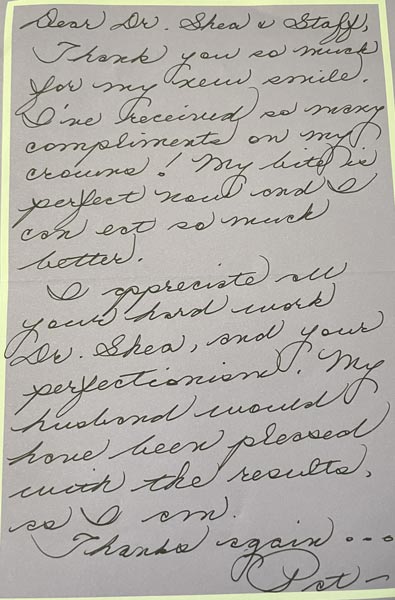 Dear Dr. Shea & Staff,
Thank you so much
for my new smile.
I've received so many
compliments on my
crowns! My bite is
perfect now and I
can eat so much
better.
I appreciate all
your hard work
Dr. Shea, and your
perfectionism. My
husband would
have been pleased
with the results,
as I am.
Thanks again...
Pat -